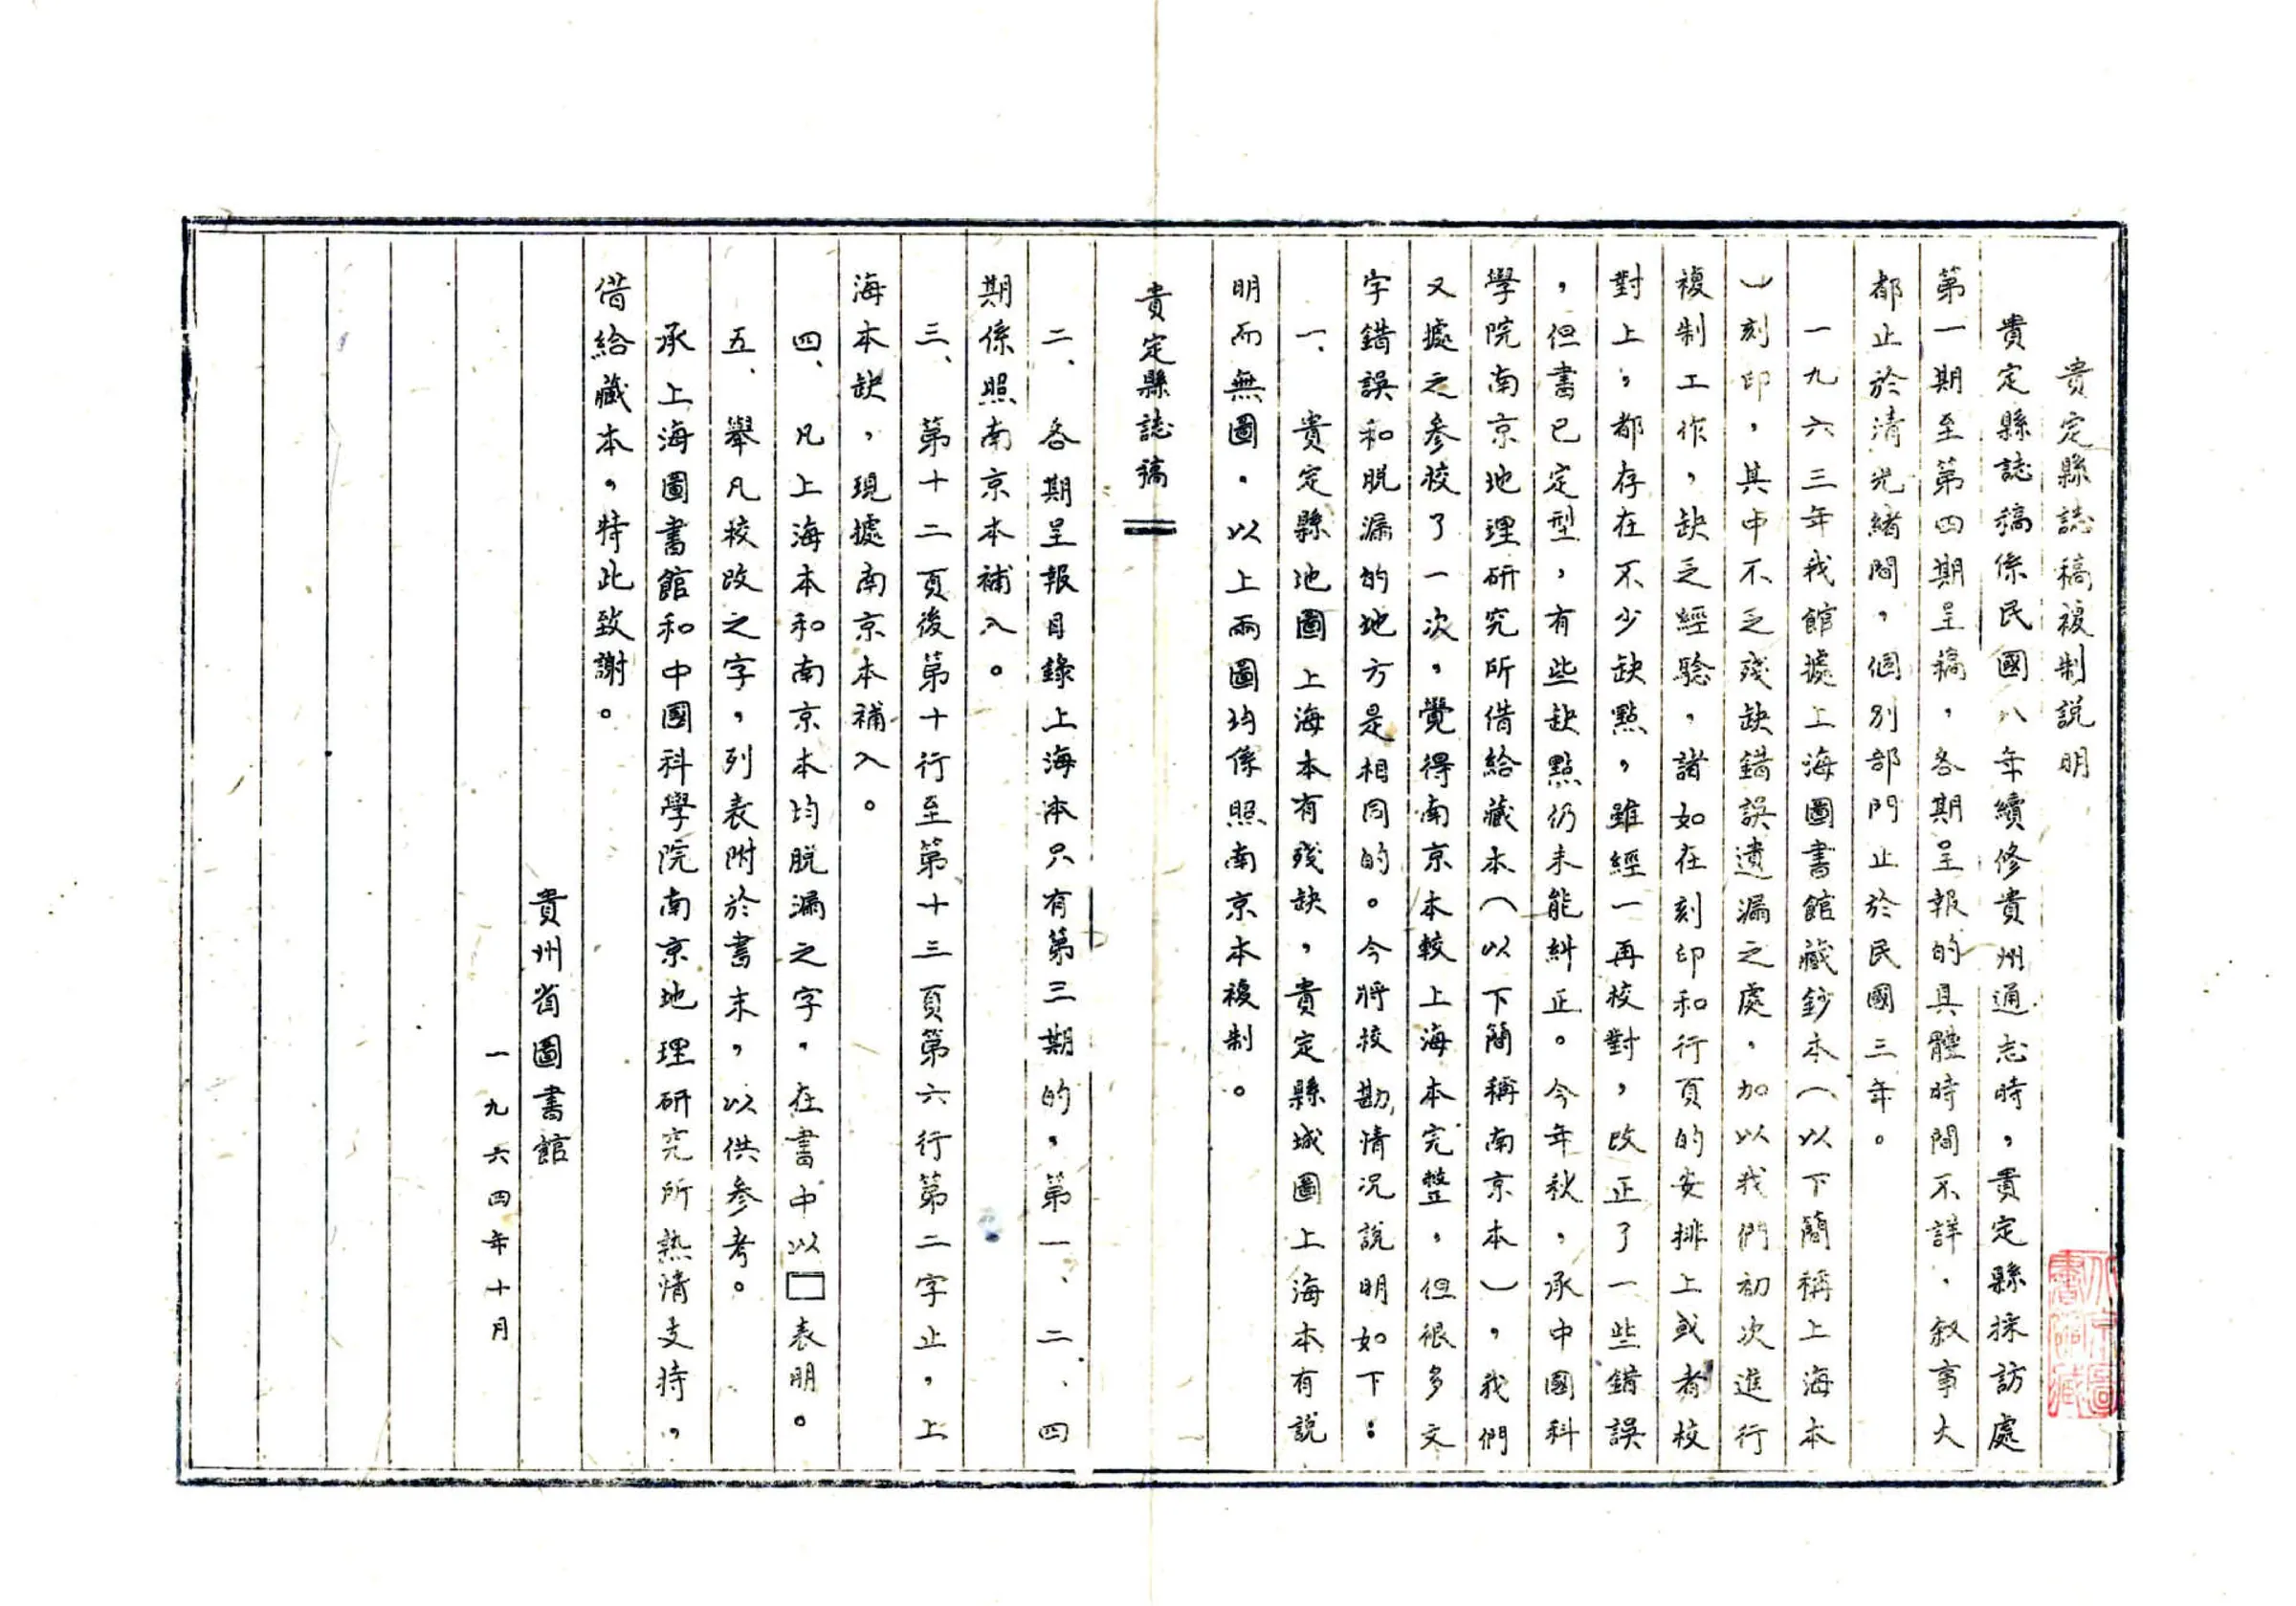 貴定縣誌稿複制説明
貴定縣誌稿係民國八年續修貴州通志時，貴定縣採訪處
第一期至第四期呈稿，各期呈報的具體時間不詳，叙事大
都止於清光緒間，個别部門止於民國三年。
一九六三年我館據上海圖書館藏鈔本（以下簡稱上海本
）刻印，其中不乏殘缺錯誤遺漏之處，加以我們初次進行
複制工作，缺乏經驗，諸如在刻印和行頁的安排上或者校
對上，都存在不少缺點，雖經一再校對，改正了一些錯誤
，但書已定型，有些缺點仍未能糾正。今年秋，承中國科
學院南京地理研究所借給藏本（以下簡稱南京本），我們
又據之参校了一次，覺得南京本較上海本完整，但很多文
字錯誤和脱漏的地方是相同的。今將校勘情况說明如下：
一、貴定縣地圖上海本有殘缺，貴定縣城圖上海本有説
明而無圖，以上兩圖均係照南京本複制。
貴定縣誌稿
二、各期呈報目錄上海本只有第三期的，第一、二、四
期係照南京本補入。
三、第十二頁後第十行至第十三頁第六行第二字止，上
海本缺，現據南京本補入。
四、凡上海本和南京本均脱漏之字，在書中以□表明。
五、舉凡校改之字，列表附於書末，以供参考。
承上海圖書館和中國科學院南京地理研究所熱情支持，
借給藏本，特此致謝。
貴州省圖書館
一九六四年十月